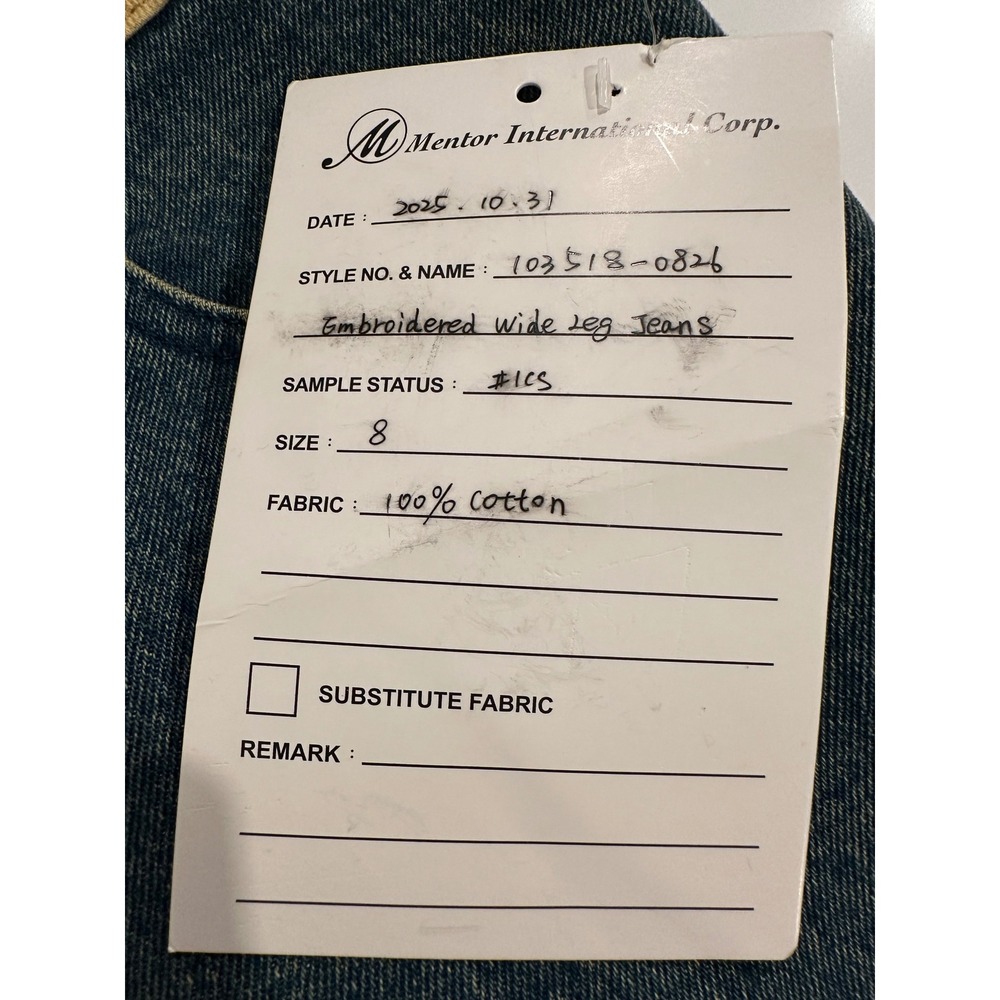 M Mentor International Corp.
DATE : 2025.10.31
STYLE NO. & NAME : 103518-0826
Embroidered Wide Leg Jeans
SAMPLE STATUS : #1CS
SIZE : 8
FABRIC : 100% Cotton
SUBSTITUTE FABRIC
REMARK :